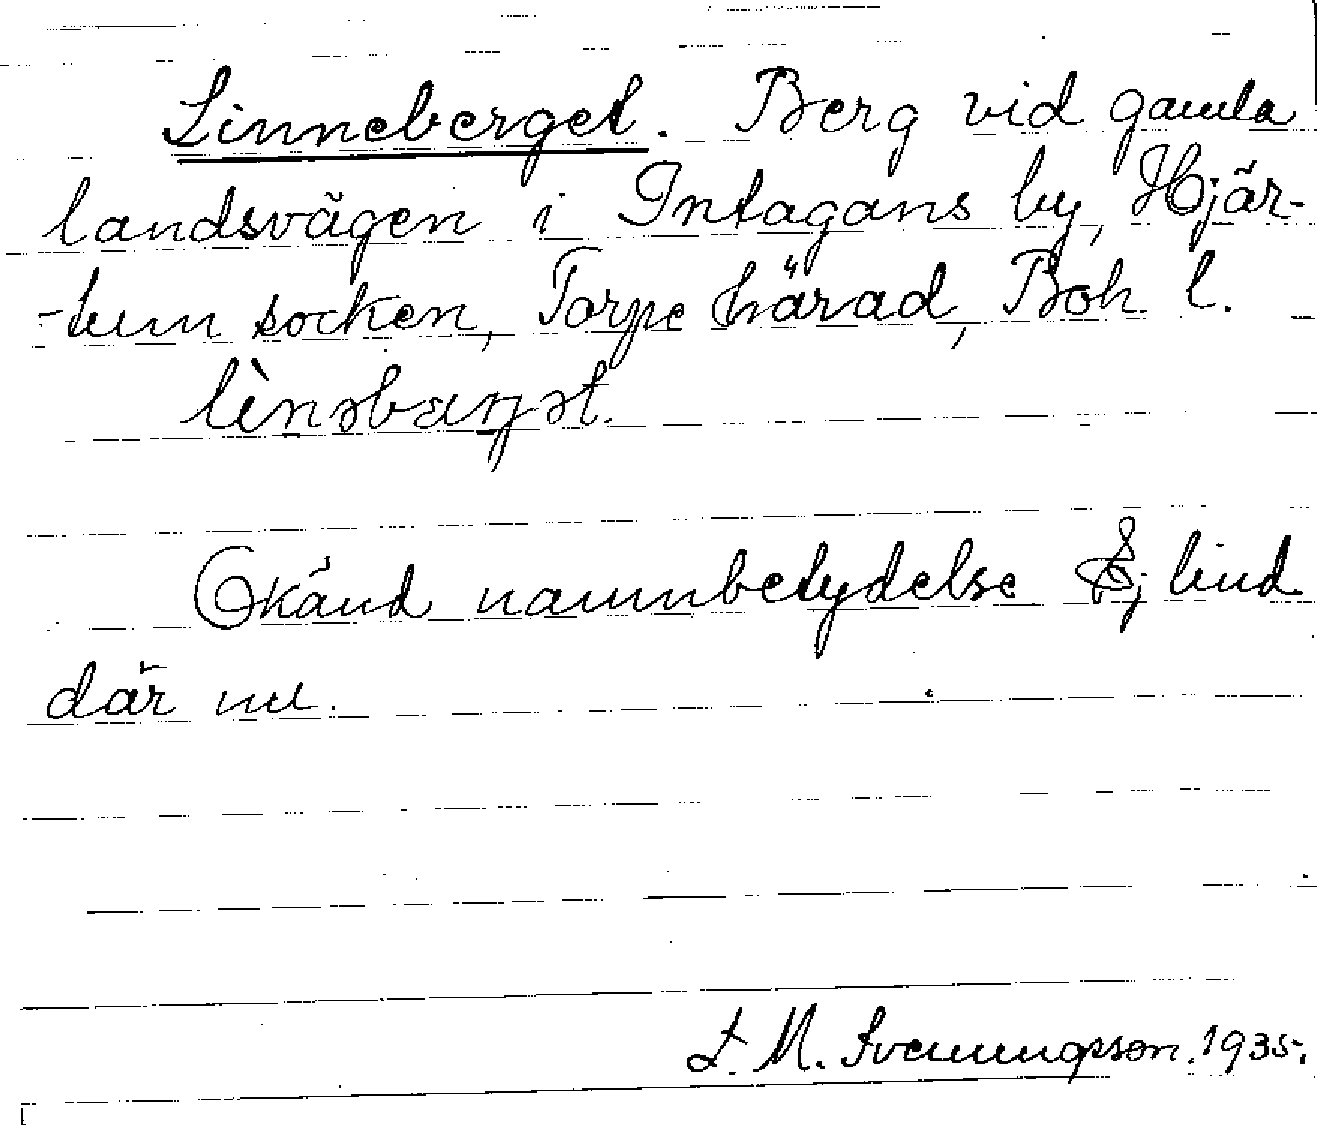 Linneberget. Berg vid gamla
landsvägen i Intagans by, Hjär-
-tum socken, Torpe härad, Boh l.
Okänd namnbetydelse Ej lind
där nu.
L. M. Svenungsson. 1935.